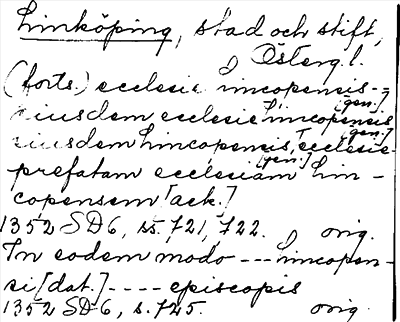 Linköping, stad och stift,
Österg. l.
(forts.) ecclesie lincopensis -
[gen.]
eiusdem ecclesie lincopensis
[gen.]
eiusdem lincopensis ecclesie -
[gen.]
prefatam ecclesiam lin-
copensem [ack.]
1352 SD6, ss. 721, 722. orig.
In eodem modo --- lincopen-
si [dat.] ---- episcopis
1352 SD6, s. 725. orig.